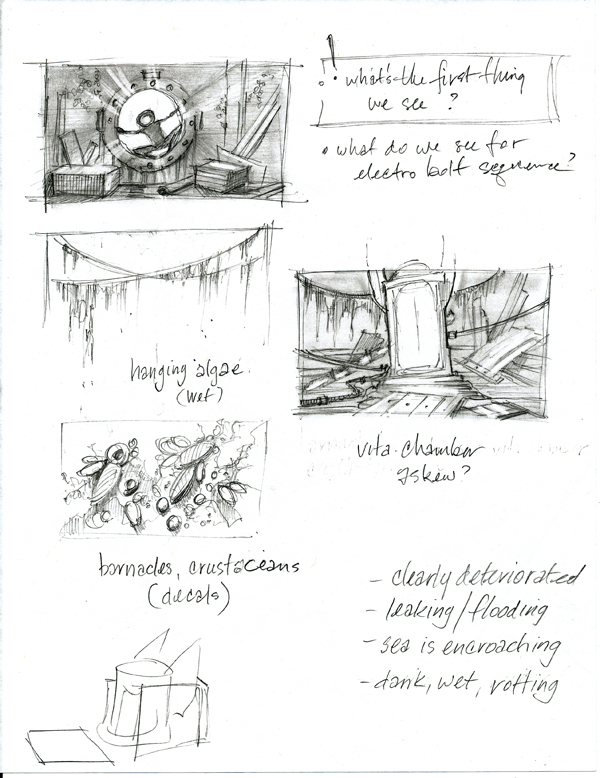 ! • what's the first thing
we see ?
• what do we see for
electro bolt sequence?
hanging algae
(wet)
vita-chamber
askew?
barnacles, crustaceans
(decals)
- clearly deteriorated
- leaking/flooding
- sea is encroaching
- dank, wet, rotting